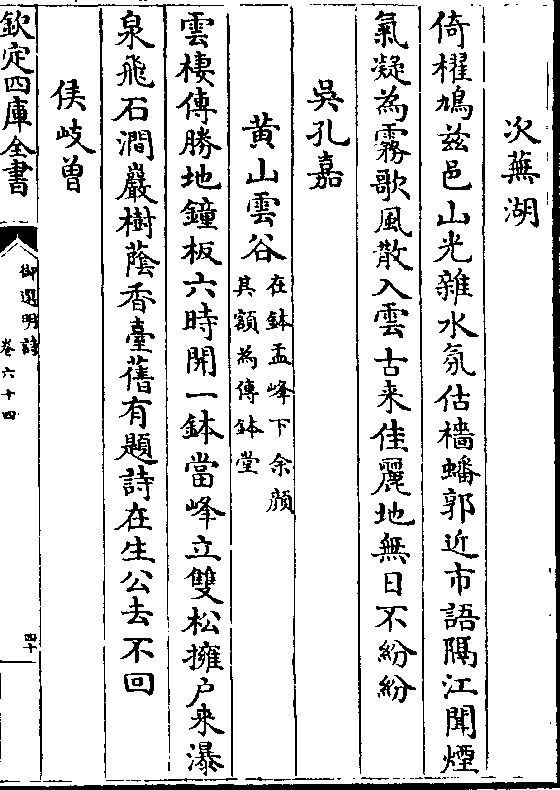 次蕪湖
倚櫂鳩兹邑山光雜水氛估檣蟠郭近市語隔江聞煙
氣凝為霧歌風散入雲古来佳麗地無日不紛紛
吳孔嘉
黄山雲谷
在鉢盂峰下余顔
其額為傳鉢堂
雲棲傳勝地鐘板六時開一鉢當峰立雙松擁户来瀑
泉飛石澗巖樹蔭香臺舊有題詩在生公去不回
侯岐曾
欽定四庫全書
御選明詩
卷六十四
四十